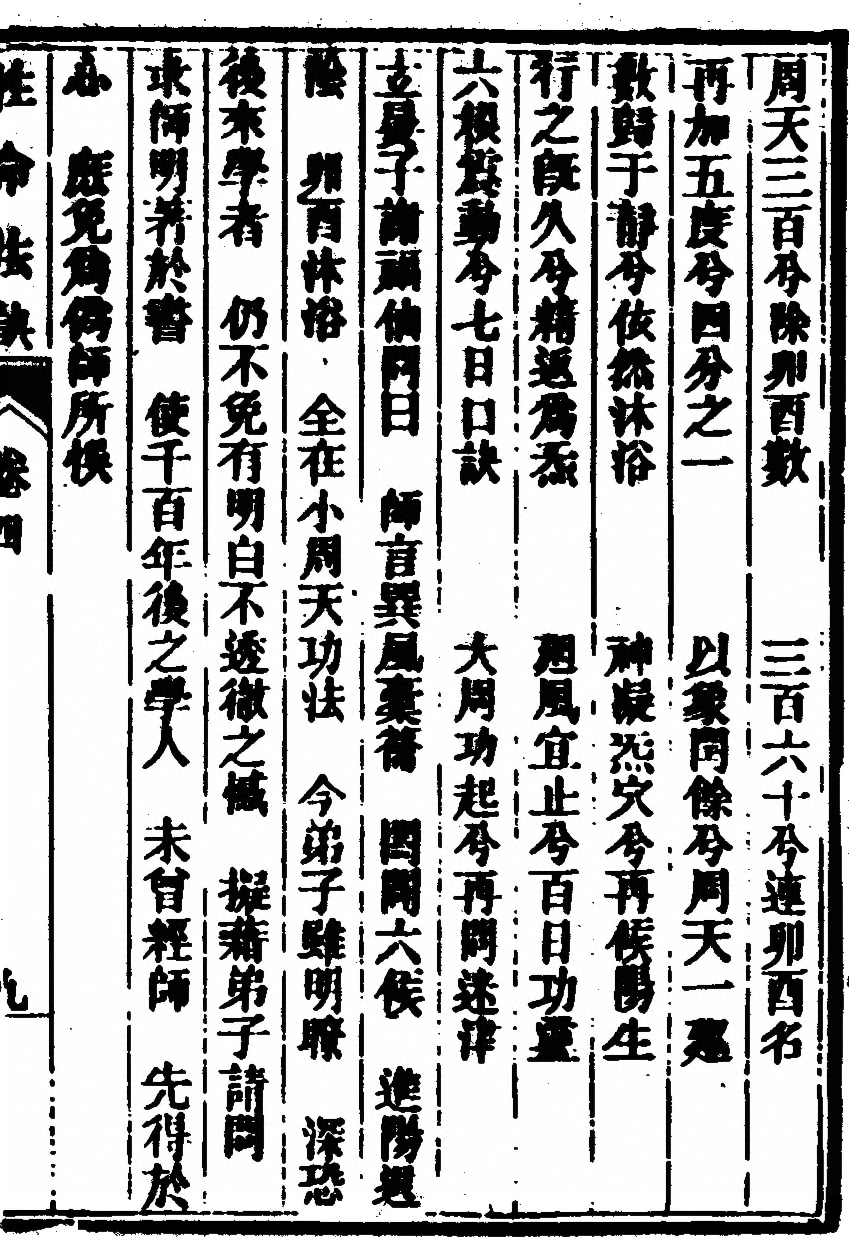 周天三百兮除卯酉數　三百六十兮連卯酉名
再加五度兮四分之一　以象閏餘兮周天一遍
數歸于靜兮依然沐浴　神凝炁穴兮再候陽生
行之旣久兮精返爲炁　巽風宜止兮百日功靈
六根震動兮七日口訣　大周功起兮再問迷津
立晏子謝福仙問曰　師言巽風橐籥　閏六候　進陽退
陰　卯酉沐浴　全在小周天功法　今弟子雖明瞭　深恐
後來學者　仍不免有明白不透徹之憾　擬藉弟子請問
求師明著於書　使千百年後之學人　未曾經師　先得於
心　庶免爲僞師所悞
性命法訣　卷四　九